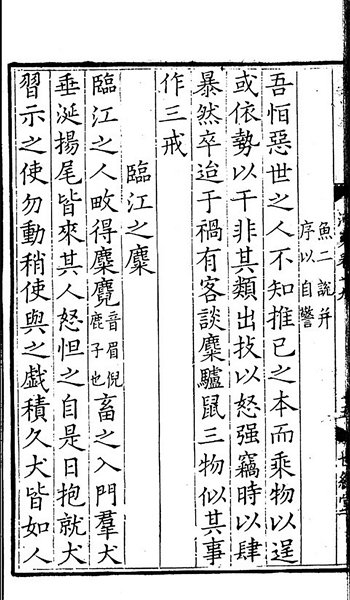 魚二說并
序以自警
吾恒惡世之人不知推己之本而乘物以逞
或依勢以干非其類出技以怒强竊時以肆
暴然卒迨于禍有客談麋驢鼠三物似其事
作三戒
臨江之麋
臨江之人畋得麋麑音眉倪鹿子也畜之入門羣犬
垂涎揚尾皆來其人怒怛之自是日抱就犬
習示之使勿動稍使與之戲積久犬皆如人